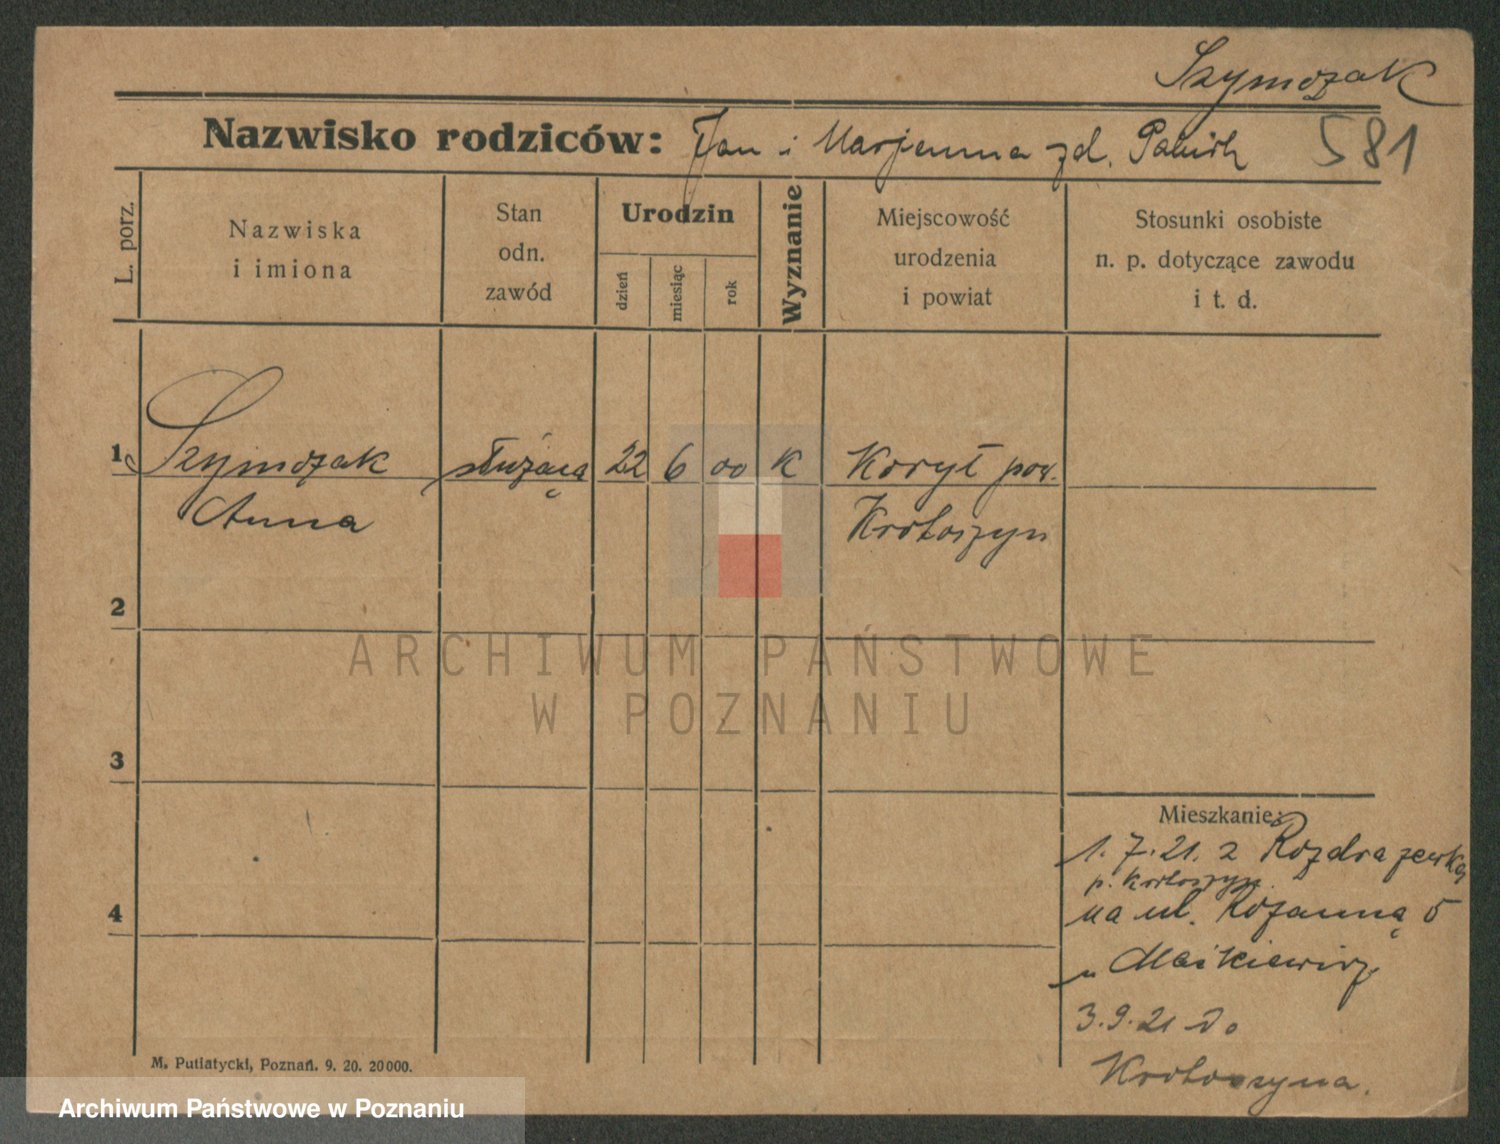 Szymczak
Nazwisko rodziców: Jan i Marjanna zd.
581
L. porz.
Nazwiska
i imiona
Stan
odn.
zawód
Urodzin
dzień
miesiąc
rok
Wyznanie
Miejscowość
urodzenia
i powiat
Stosunki osobiste
n. p. dotyczące zawodu
i t. d.
1 Szymczak służąca 22 6 00 K Koryt pow.
Anna Krotoszyn
2
3
4
Mieszkanie:
1.7.21. z Rozdrażewka
p. Krotoszyn.
na ul. Różanną 5
u Maśkiewicz
3.9.21 do
Krotoszyna.
M. Putiatycki, Poznań. 9. 20. 20000.
ARCHIWUM PAŃSTWOWE
W POZNANIU
Archiwum Państwowe w Poznaniu